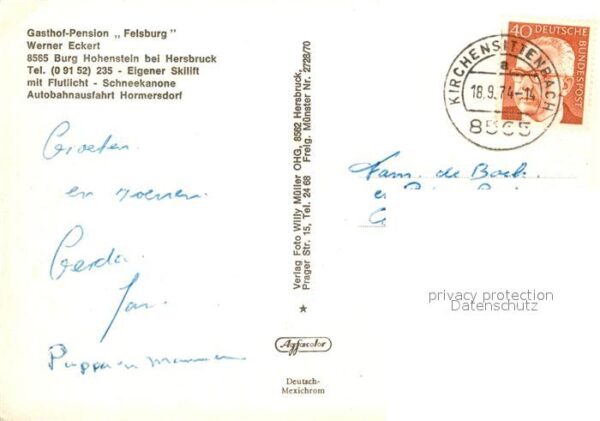 Gasthof-Pension „ Felsburg "
Werner Eckert
8565 Burg Hohenstein bei Hersbruck
Tel. (0 91 52) 235 - Eigener Skilift
mit Flutlicht - Schneekanone
Autobahnausfahrt Hormersdorf
Groeten
en zoenen
Gerda
Jan
Verlag Foto Willy Müller OHG, 8562 Hersbruck,
Prager Str. 15, Tel. 24 68 Freig. Münster Nr. 2728/70
Agfacolor
Deutsch-
Mexichrom
40
DEUTSCHE
BUNDESPOST
KIRCHENSITTENBACH
a
18.9.74-14
8565
Fam. de
privacy protection